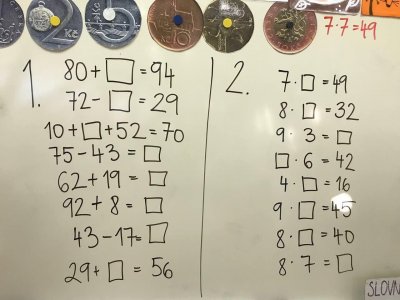 7·7=49
1.
80+□=94
72-□=29
10+□+52=70
75-43=□
62+19=□
92+8=□
43-17=□
29+□=56
2.
7·□=49
8·□=32
9·3=□
□·6=42
4·□=16
9·□=45
8·□=40
8·7=□
SLOVN